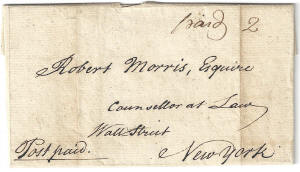 paid 2
Robert Morris, Esquire
Counsellor at Law
Wall Street
Post paid.
New York